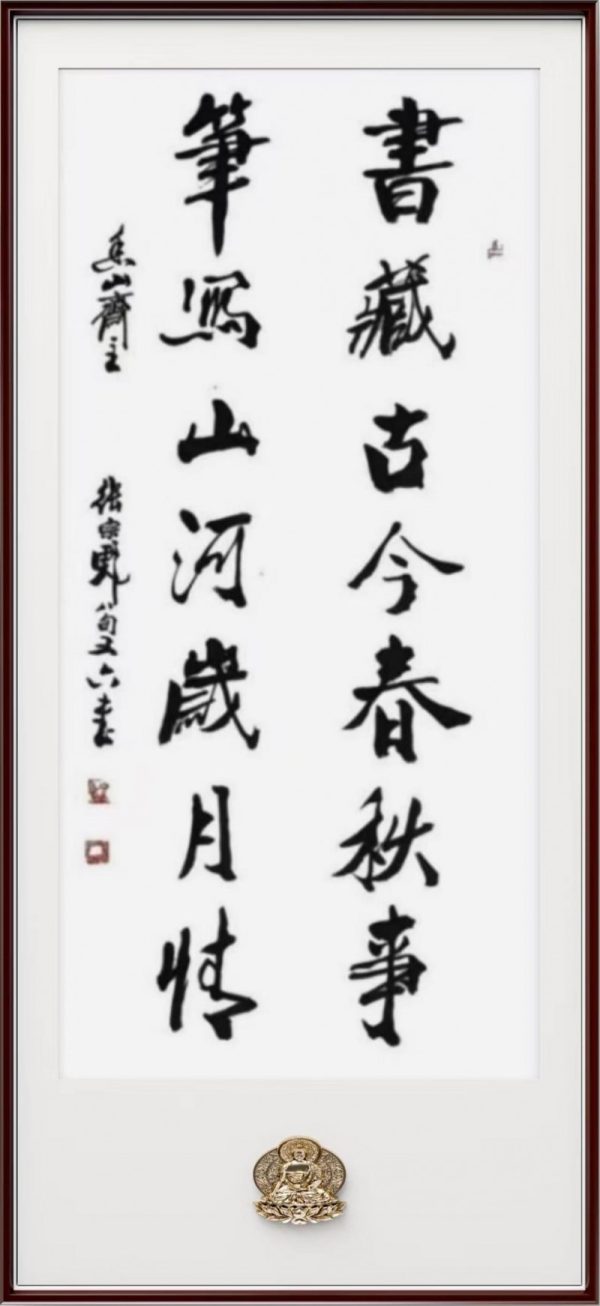 書藏古今春秋事
筆寫山河歲月情
山齋主
張宗 八旬又六書